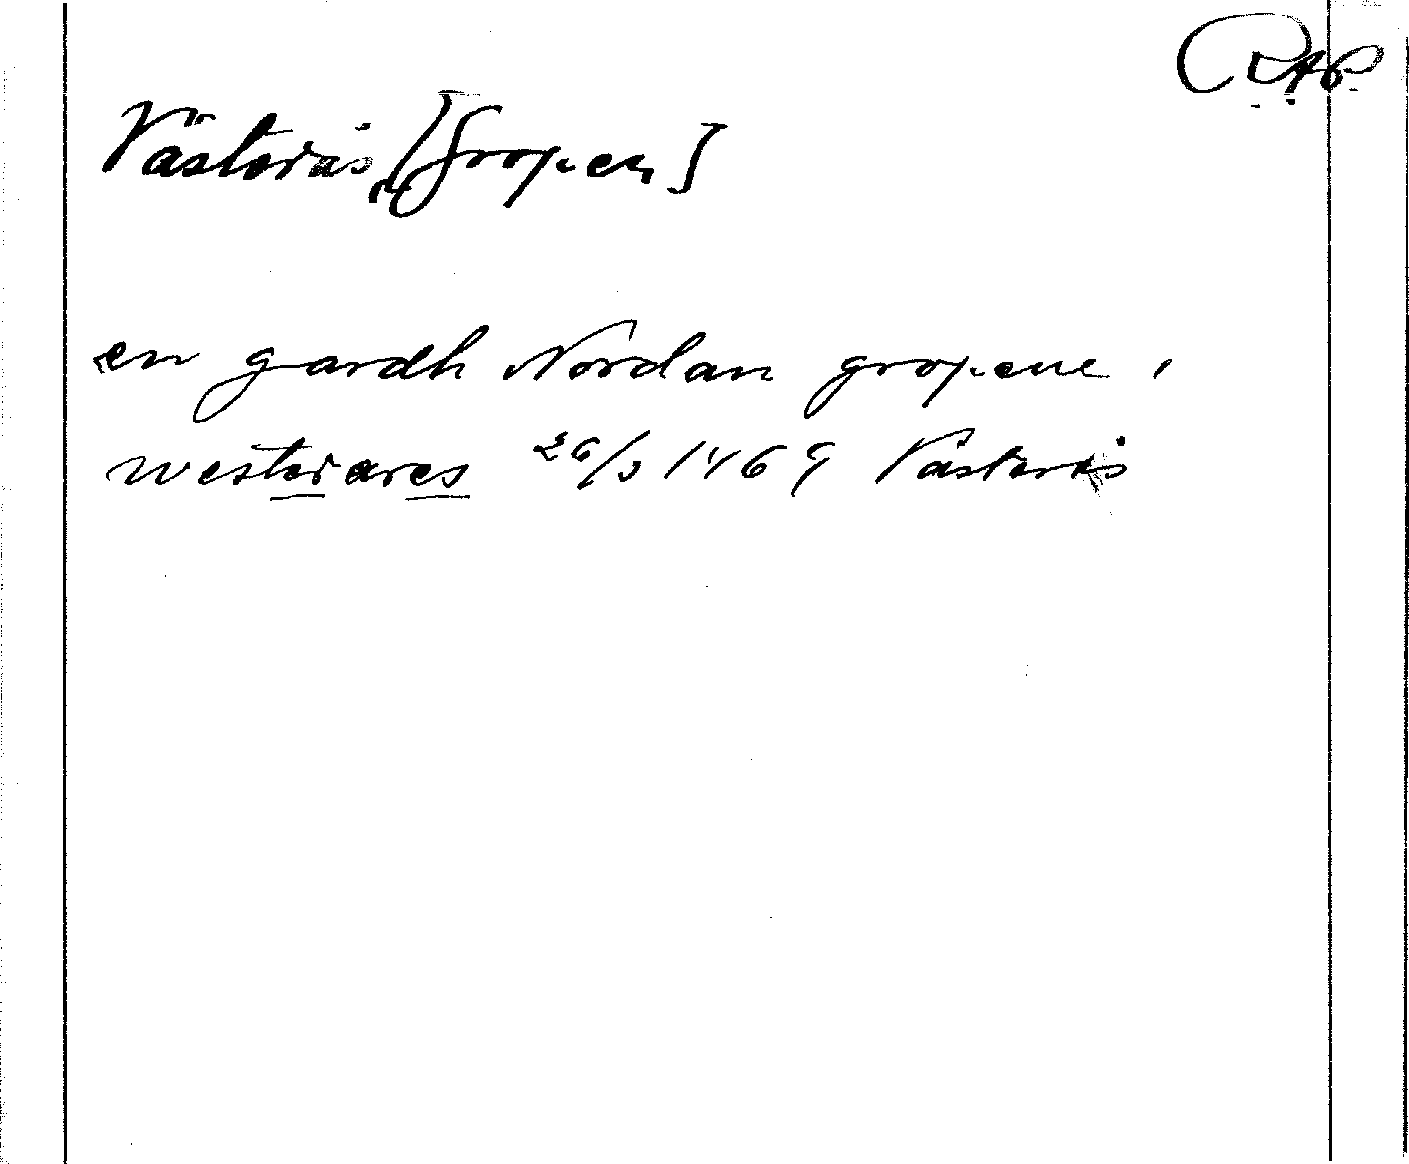 RAP
Västerås, [Gropen]
en gardh Nordan gropene i
westerares 26/3 1469 Västerås